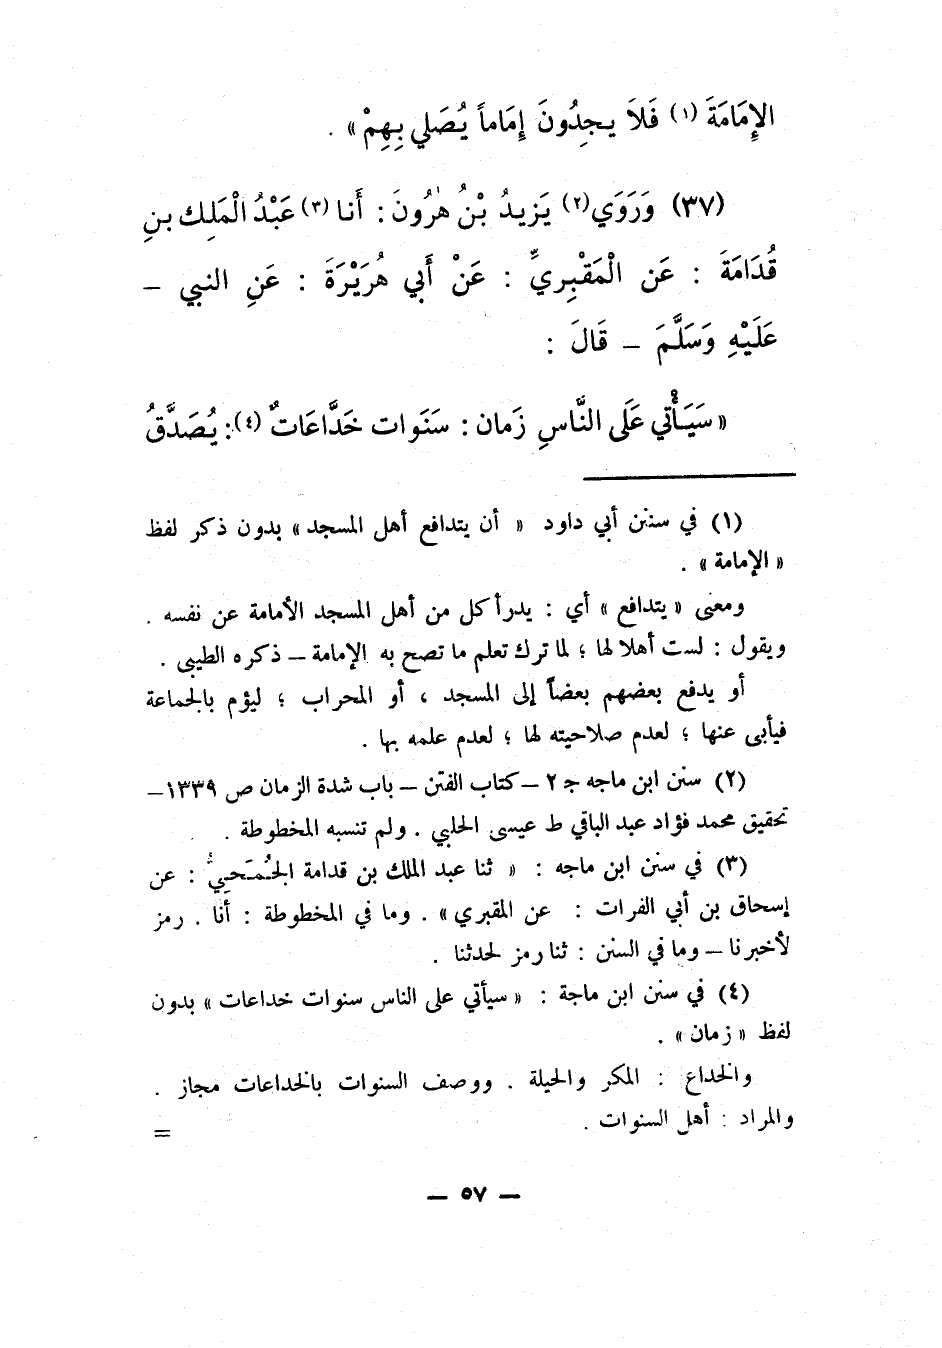 الإِمَامَةَ (١) فَلاَ يجِدُونَ إِمَاماً يُصَلي بِهِمْ» .
(٣٧) وَرَوَي(٢) يَزيدُ بْنُ هٰرُونَ : أَنا (٣) عَبْدُ الْمَلِك بنِ
قُدَامَةَ : عَن الْمَقْبِريِّ : عَنْ أَبي هُرَيْرَةَ : عَنِ النبي –
عَلَيْهِ وَسَلَّمَ – قَالَ :
« سَيَأْتي عَلَى النَّاسِ زَمان : سَنَوات خَدَّاعَاتٌ (٤): يُصَدَّقُ
(١) في سنن أبي داود « أن يتدافع أهل المسجد » بدون ذكر لفظ
« الإمامة » .
ومعنى « يتدافع » أي : يدرأ كل من أهل المسجد الأمامة عن نفسه .
ويقول : لست أهلا لها ؛ لما ترك تعلم ما تصح به الإمامة – ذكره الطيبى .
أو يدفع بعضهم بعضاً إلى المسجد ، أو المحراب ؛ ليؤم بالجماعة
فيأبى عنها ؛ لعدم صلاحيته لها ؛ لعدم علمه بها .
(٢) سنن ابن ماجه جـ ٢ – كتاب الفتن – باب شدة الزمان ص ١٣٣٩ –
تحقيق محمد فؤاد عبد الباقي ط عيسى الحلبي . ولم تنسبه المخطوطة .
(٣) في سنن ابن ماجه : « ثنا عبد الملك بن قدامة الجُمَحِيُّ : عن
إسحاق بن أبي الفرات : عن المقبري » . وما في المخطوطة : أنا . رمز
لأخبرنا – وما في السنن : ثنا رمز لحدثنا .
(٤) في سنن ابن ماجة : « سيأتي على الناس سنوات خداعات » بدون
لفظ « زمان » .
والخداع : المكر والحيلة . ووصف السنوات بالخداعات مجاز .
والمراد : أهل السنوات .
=
– ٥٧ –